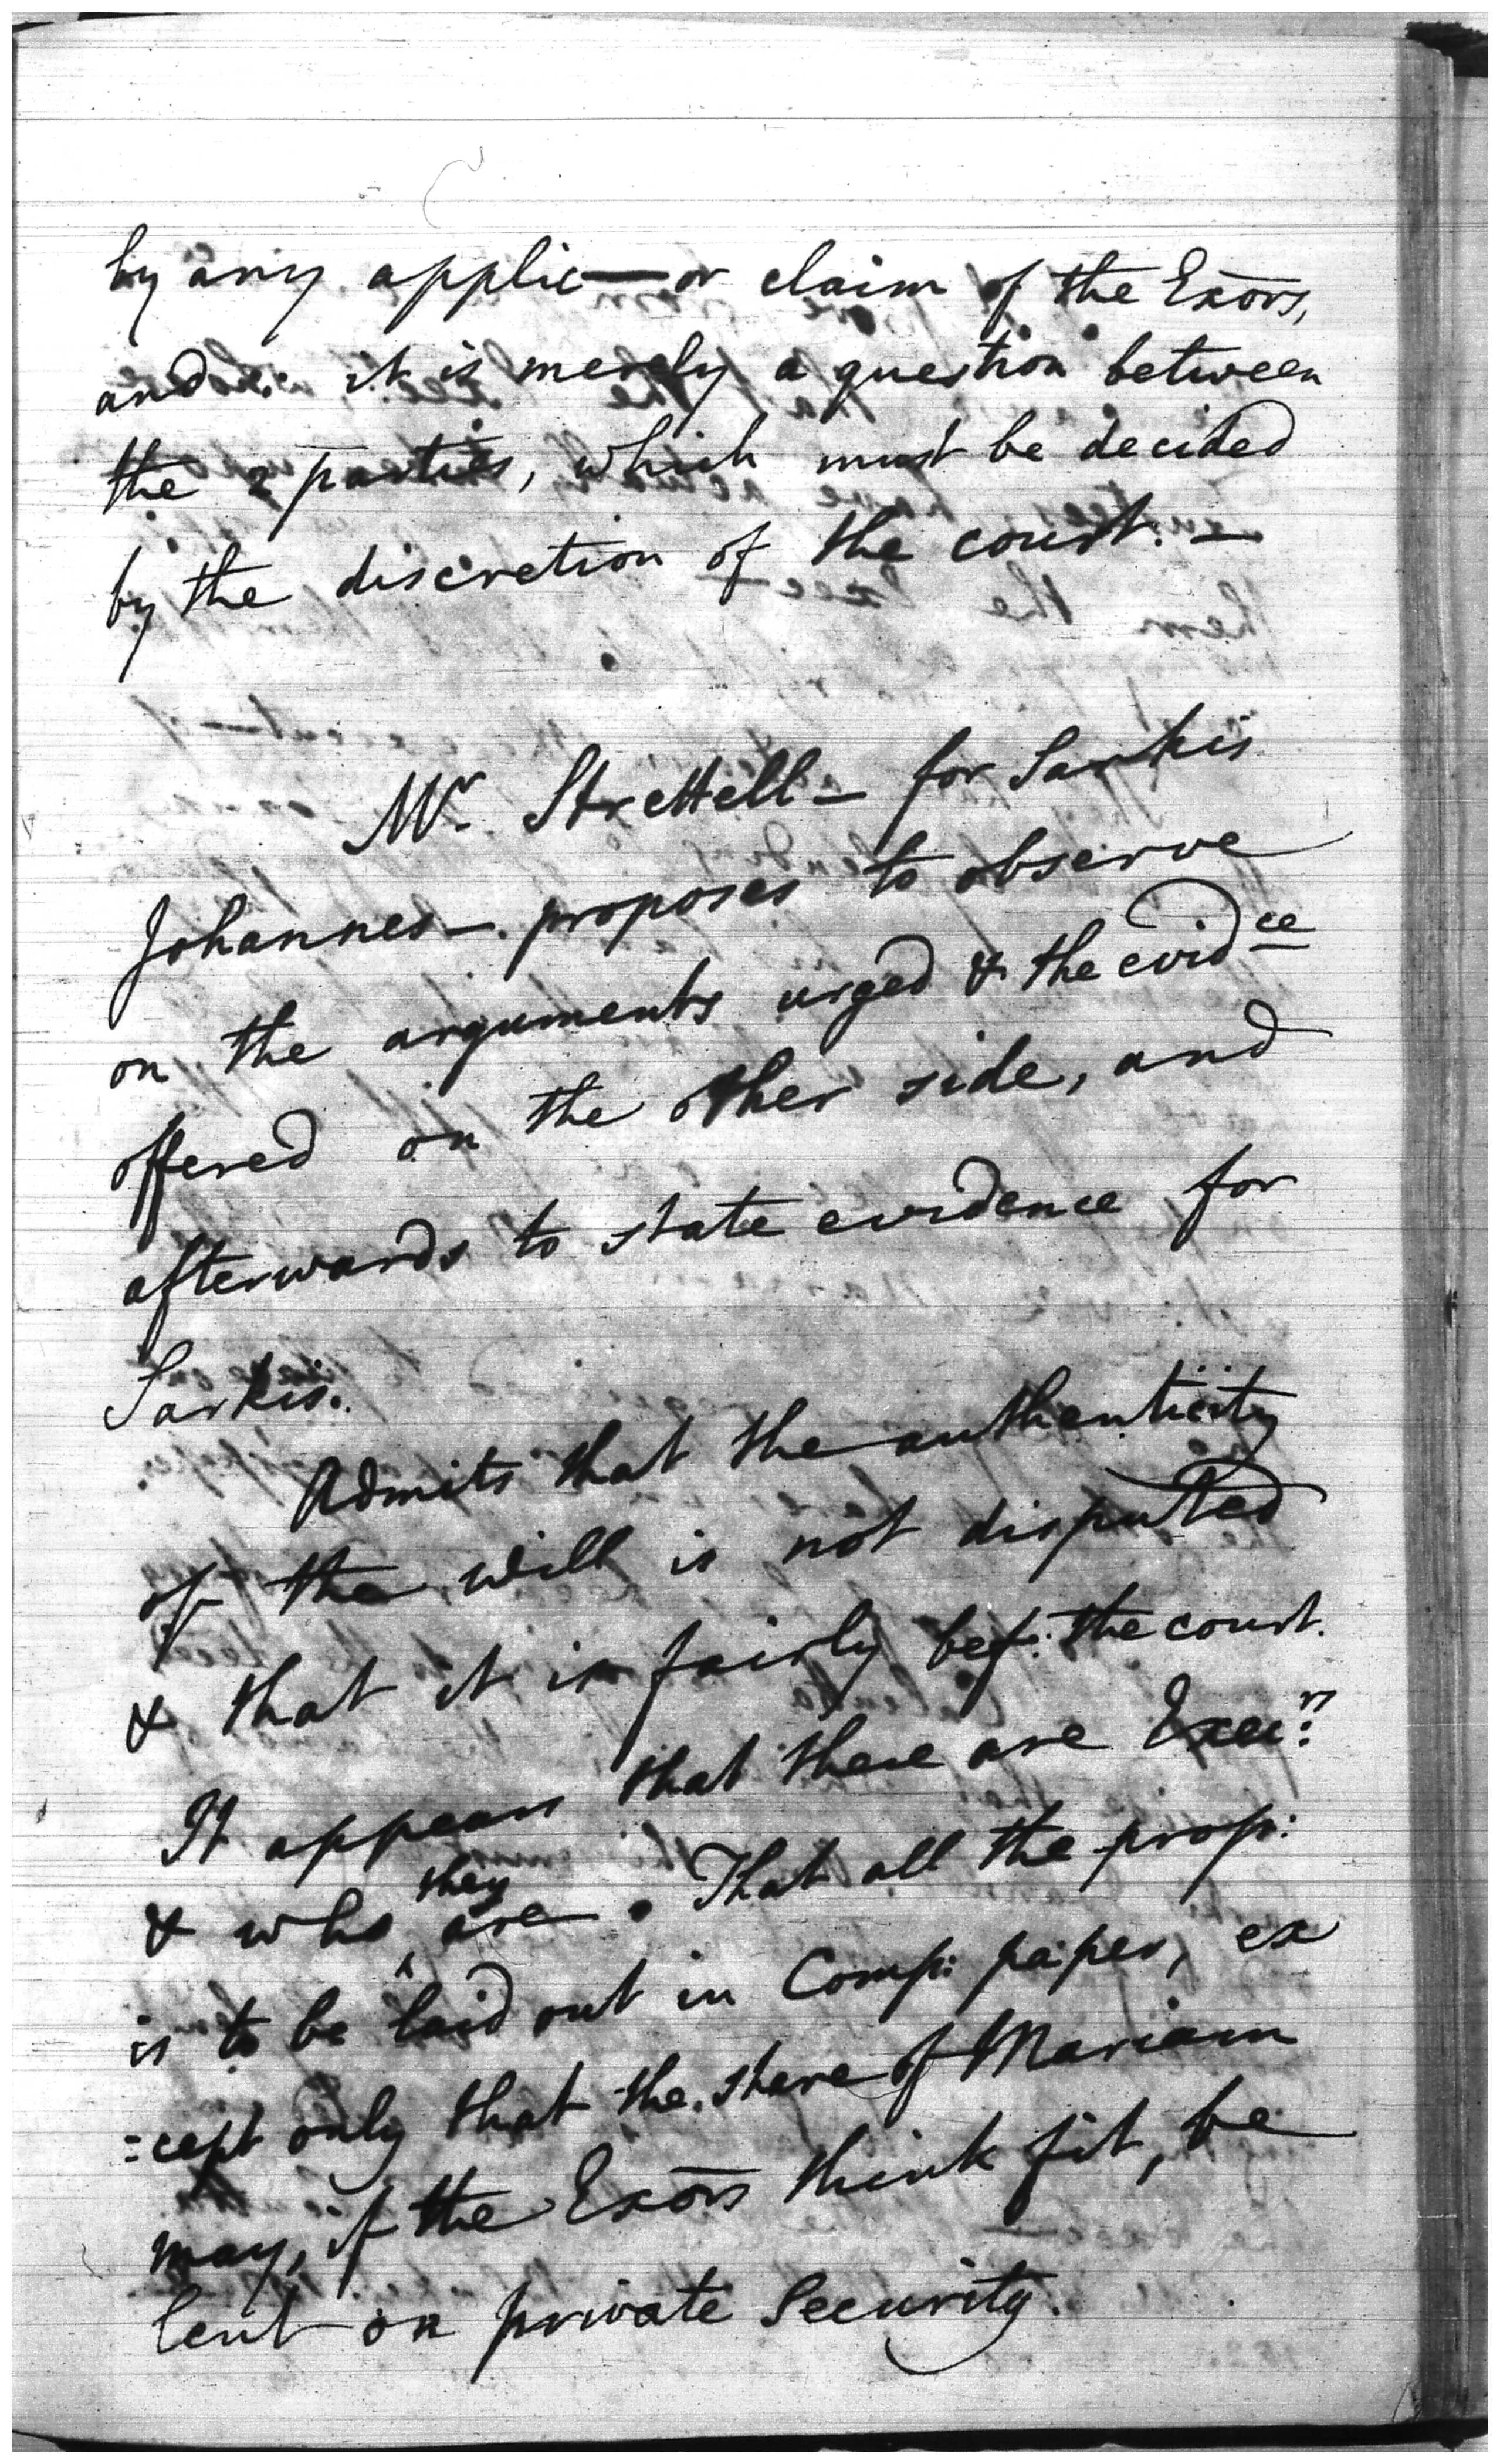 by any applic— or claim of the Exors,
and ∴ it is merely a question between
the 2 parties, which must be decided
by the discretion of the court. —
Mr. Strettell — for Sarkis
Johannes —. proposes to observe
on the arguments urged & the evidce
offered on the other side, and
afterwards to state evidence for
Sarkis.
Admits that the authenticity
of the will is not disputed
& that it is fairly bef: the court.
It appears that there are Execrs:
& who they are. That all the prop:
is to be laid out in Comp: paper, ex
=cept only that the share of Mariam
may, if the Exors think fit, be
lent on private Security.